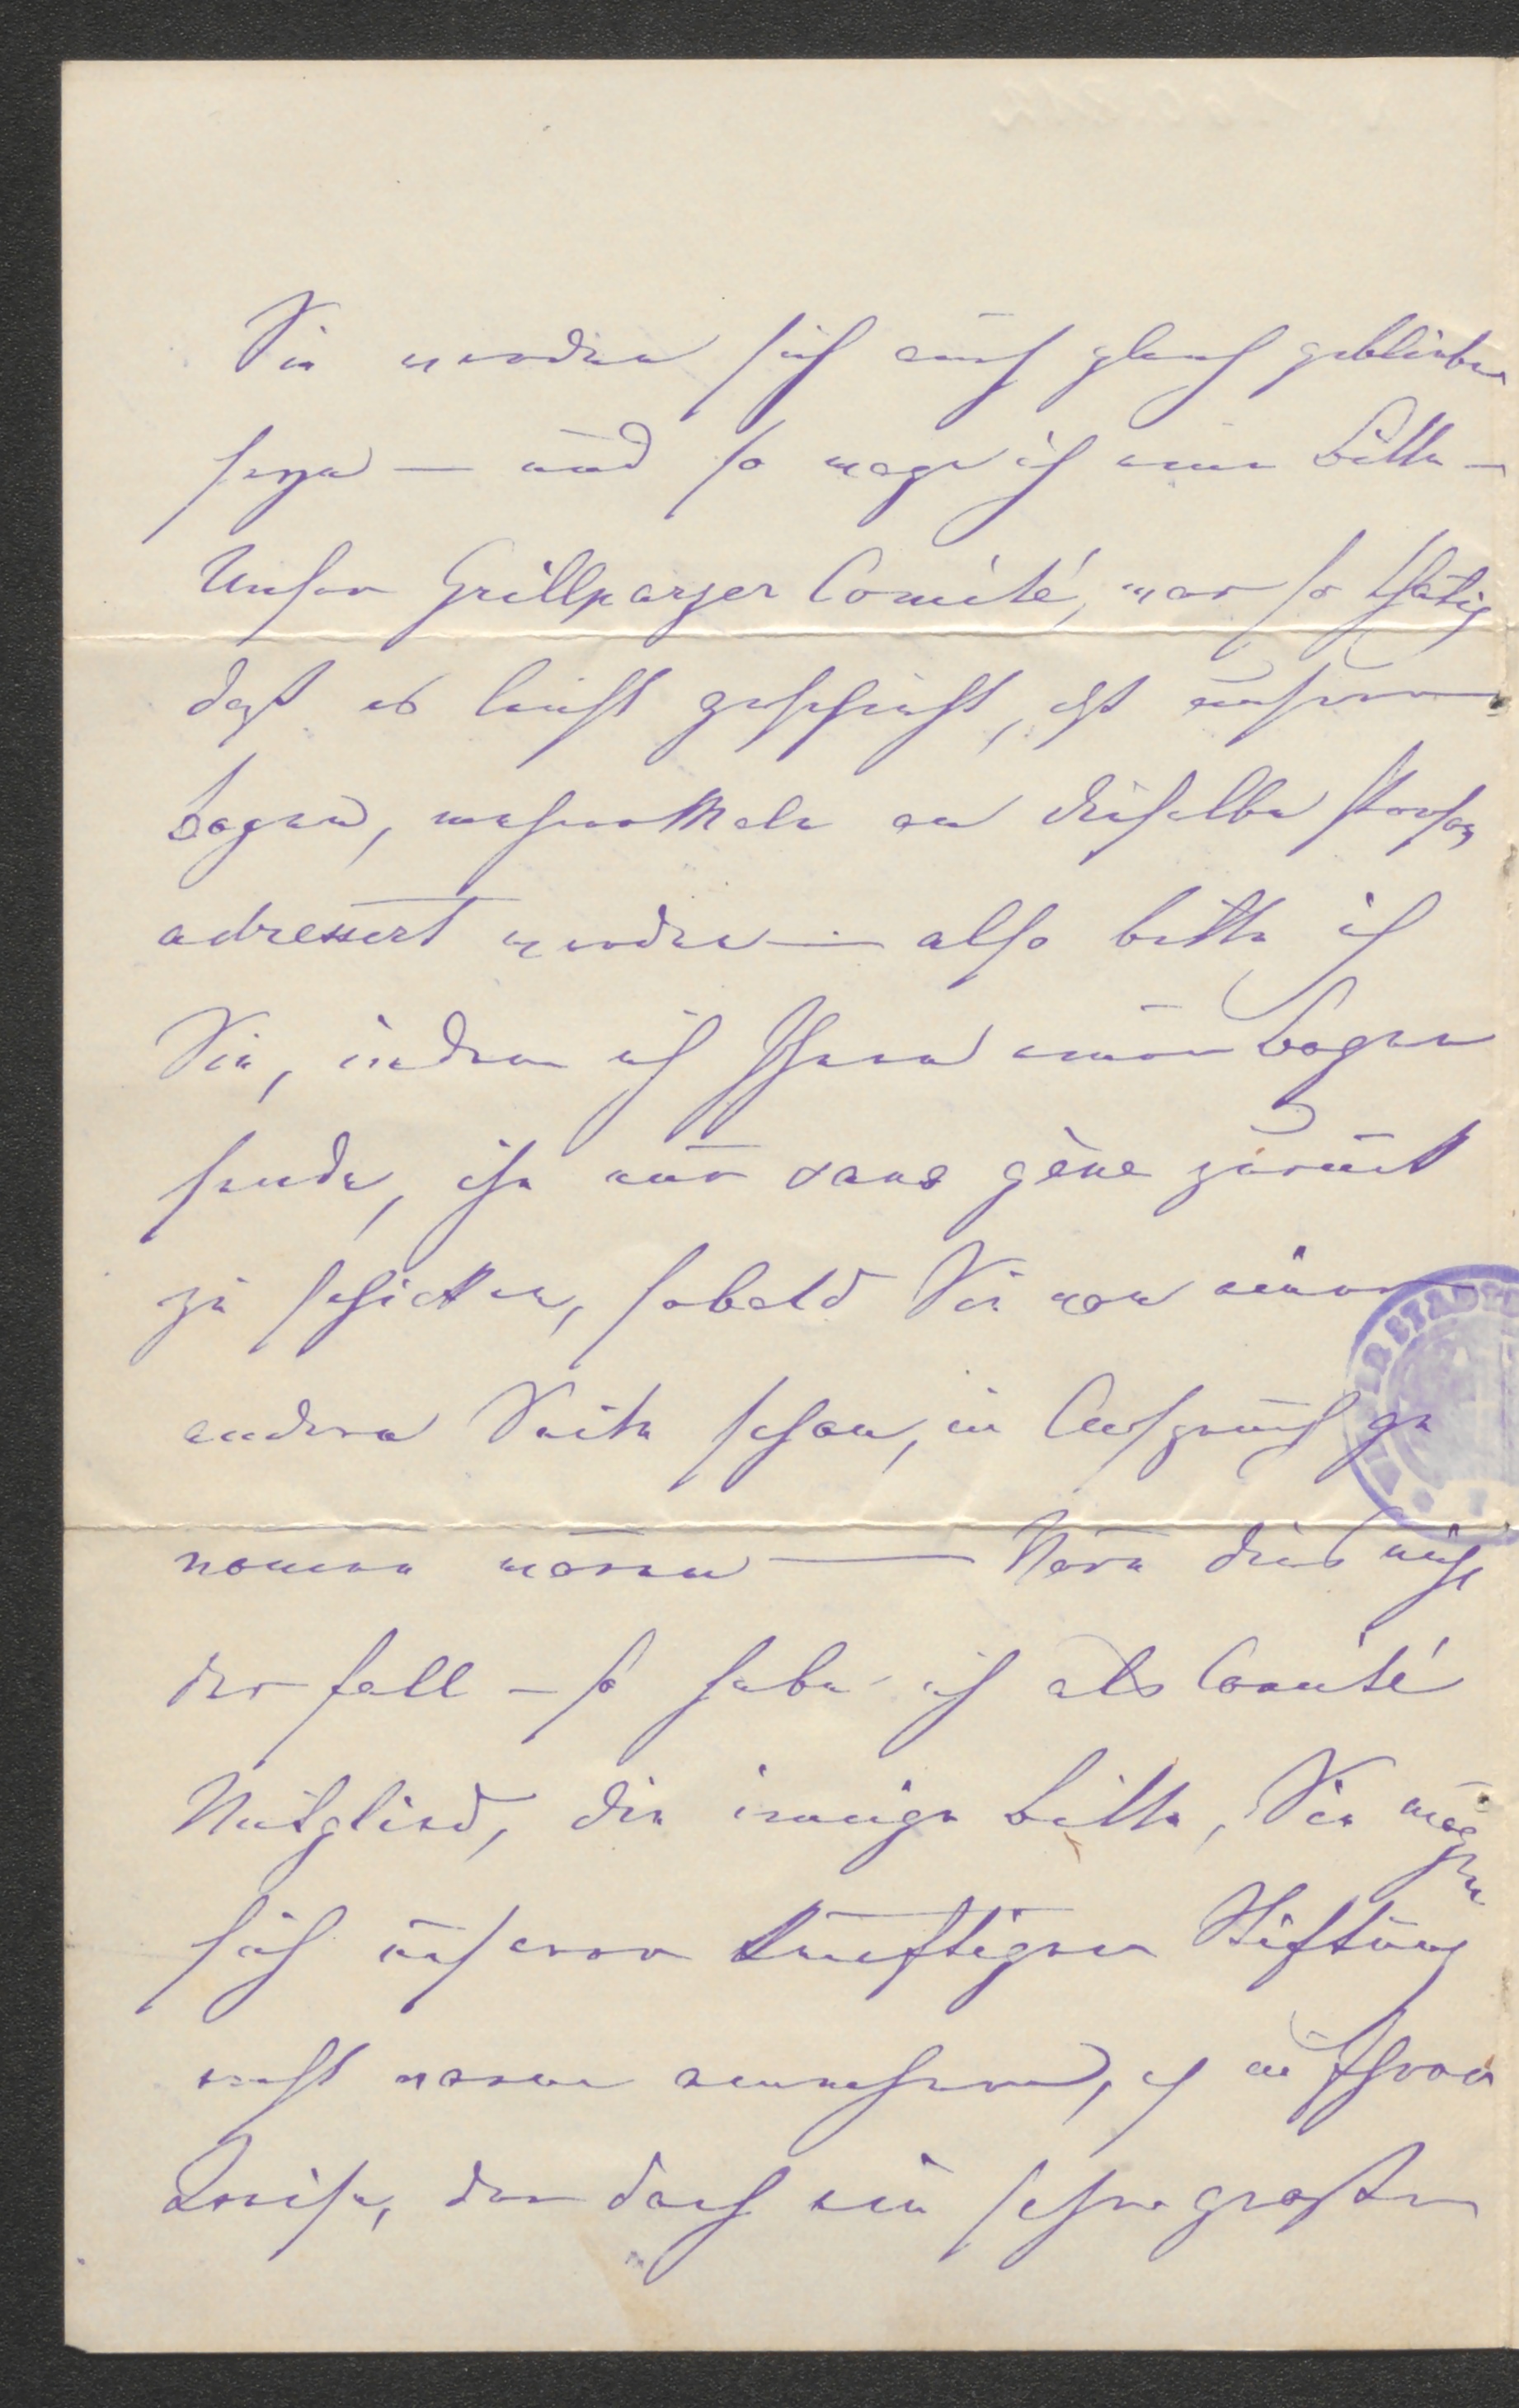 Sie werden sich auch gleich geblieben
seyn — und so wage ich eine Bitte —
Unser Grillparzer Comité, war so thätig
daß es leicht geschieht, daß unsere
Bogen, mehreremale an dieselbe Person
adressirt werden — also bitte ich
Sie, indem ich Ihnen einen Bogen
sende, ihn nur sans gène zurück
zu schicken, sobald Sie von einer
andern Seite schon, in Anspruch ge
nommen wären — Wäre dies nicht
der Fall — so habe ich als Comité
Mitglied, die innige Bitte, Sie mögen
sich unserer künftigen Stiftung
recht warm annehmen, in Ihrem
Kreise, der doch ein sehr großer